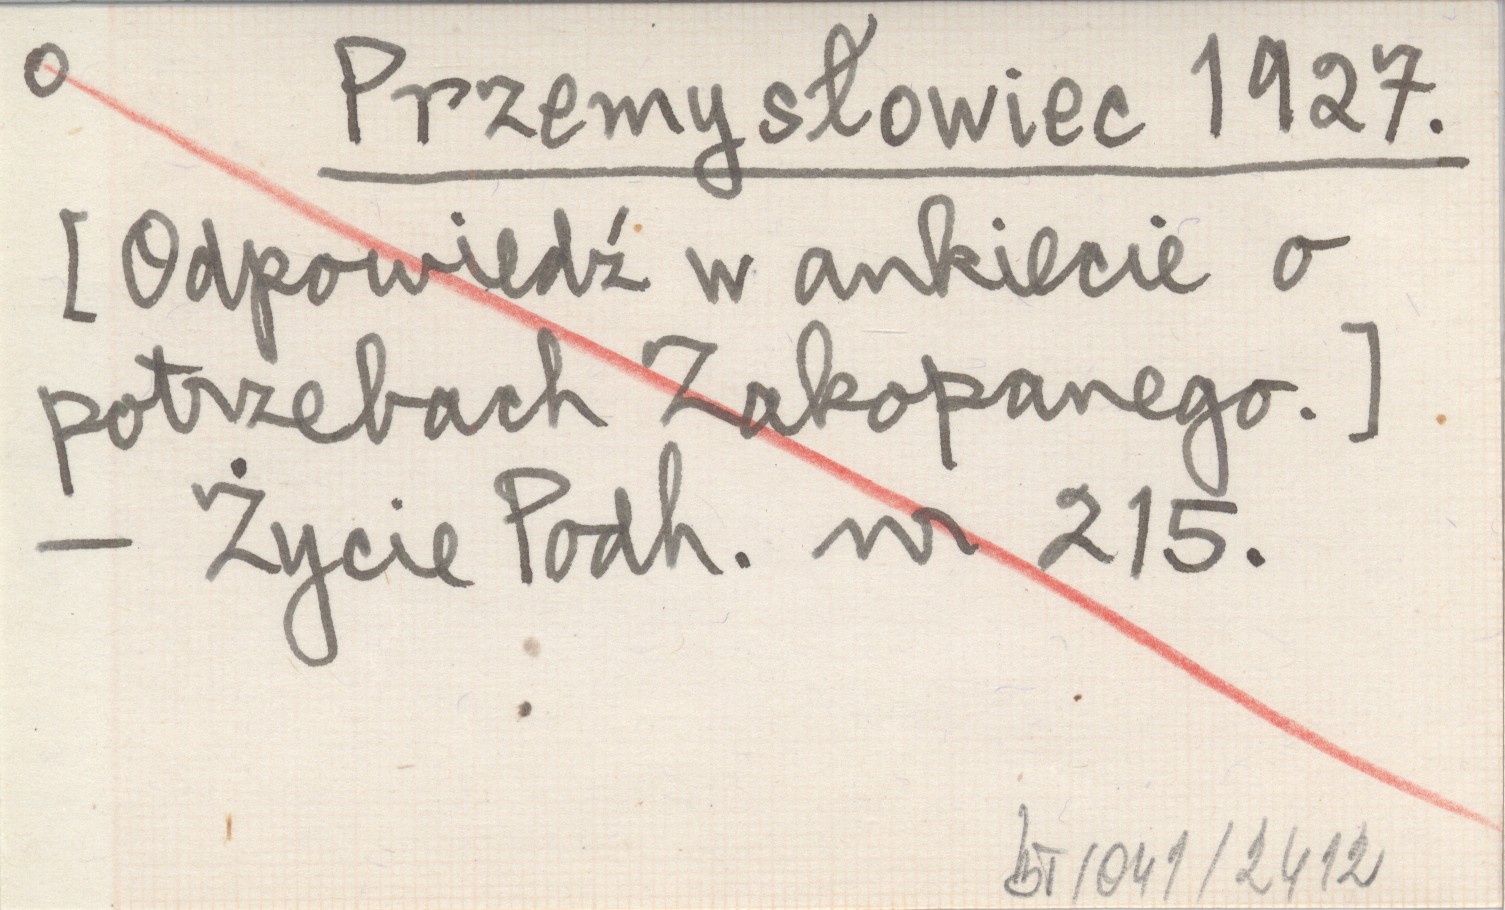 o Przemysłowiec 1927.
[Odpowiedź w ankiecie o
potrzebach Zakopanego.]
— Życie Podh. nr 215.
BT/041/2412